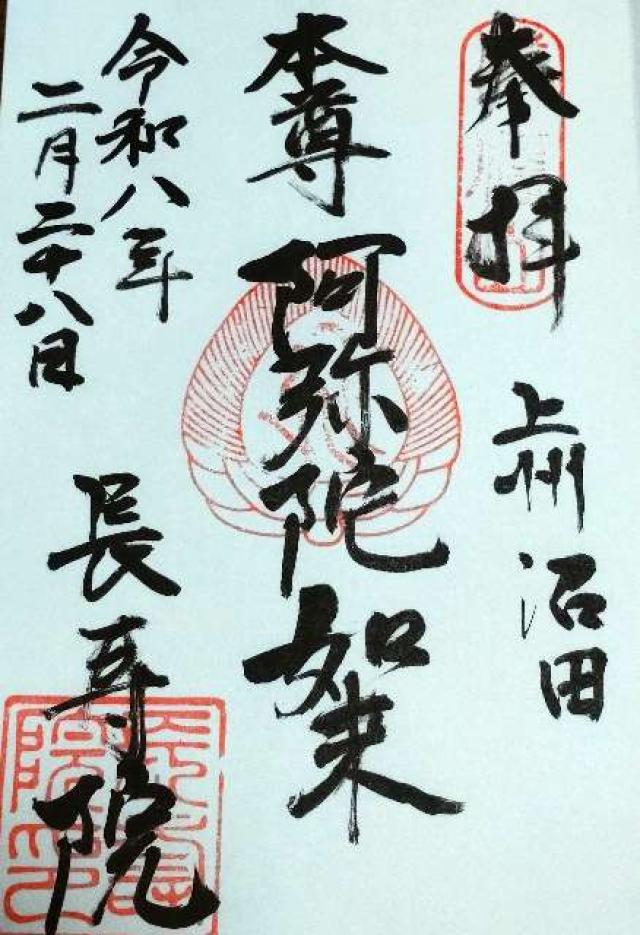 奉拝
上州 沼田
本尊 阿弥陀如来
令和八年
二月二十八日
長寿院